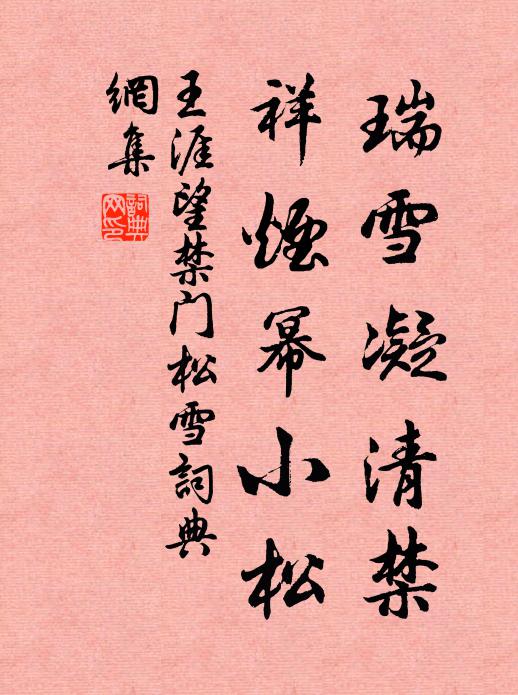 瑞雪凝清禁
祥煙冪小松
王涯望禁门松雪詞典
網集
詞典网印